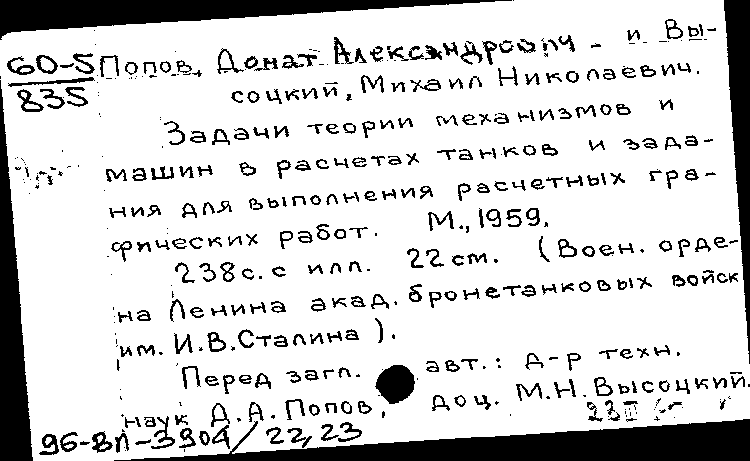 60-5 Попов, Донат Александрович - и Вы-
835 соцкий, Михаил Николаевич.
Задачи теории механизмов и
машин в расчетах танков и зада-
ния для выполнения расчетных гра-
фических работ. М., 1959.
238с. с илл. 22см. (Воен. орде-
на Ленина акад. бронетанковых войск
им. И.В.Сталина).
Перед загл. авт.: д-р техн.
наук Д.А.Попов, доц. М.Н.Высоцкий.
96-ВЛ-3904/22,23